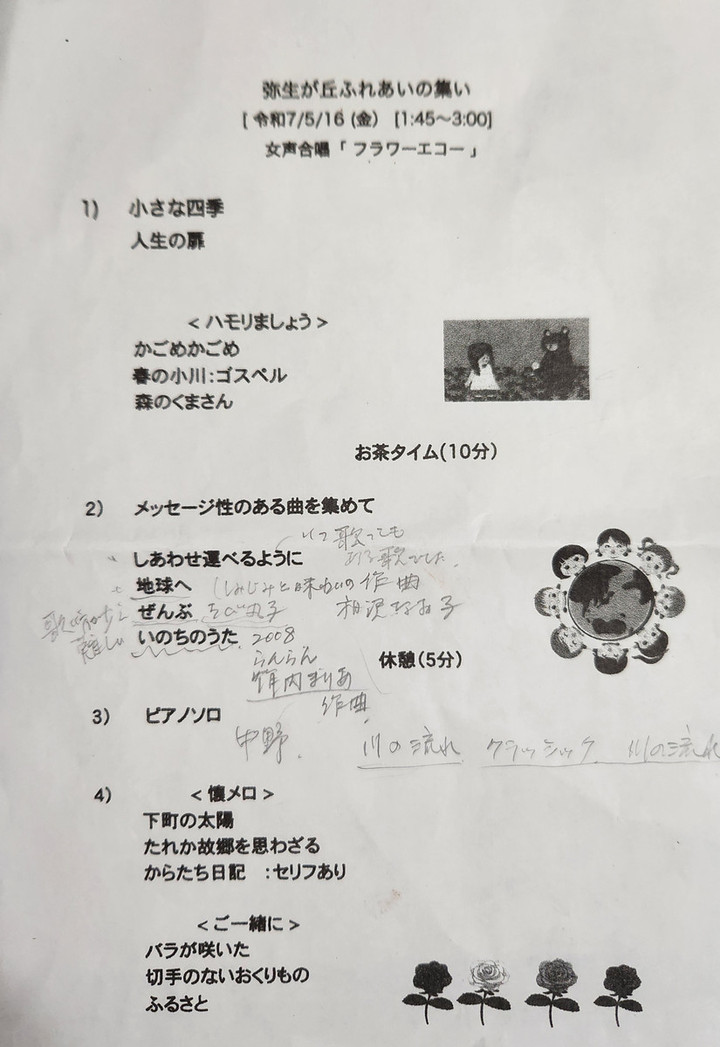 弥生が丘ふれあいの集い
[ 令和7/5/16 (金) [1:45~3:00]
女声合唱「 フラワーエコー 」
1) 小さな四季
人生の扉
< ハモリましょう >
かごめかごめ
春の小川:ゴスペル
森のくまさん
お茶タイム(10分)
2) メッセージ性のある曲を集めて
いつ歌っても
しあわせ運べるように ある歌でした.
地球へ しみじみと味わいの作曲
ぜんぶ さび丸子 相沢なお子
歌い方がちと難しい
いのちのうた 2008
らんらん
休憩(5分)
竹内まりあ
作曲
3) ピアノソロ
中野. 川の流れ クラッシック. 川の流れ
4) < 懐メロ >
下町の太陽
たれか故郷を思わざる
からたち日記 :セリフあり
< ご一緒に >
バラが咲いた
切手のないおくりもの
ふるさと